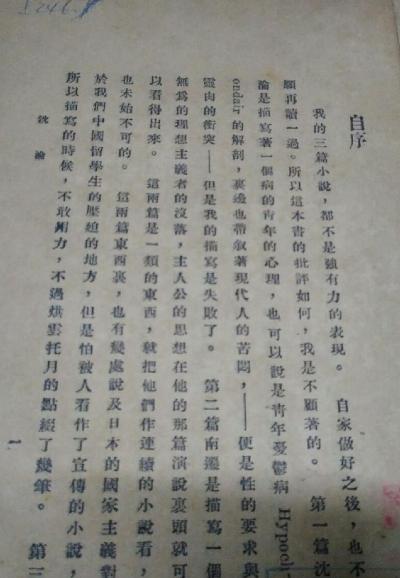 自序
我的三篇小說，都不是強有力的表現。自家做好之後，也不
願再讀一過。所以這本書的批評如何，我是不顧著的。第一篇沈
淪是描寫著一個病的青年的心理，也可以說是青年憂鬱病 Hypoch
ondair 的解剖，裏邊也帶敘著現代人的苦悶，——便是性的要求與
靈肉的衝突——但是我的描寫是失敗了。第二篇南遷是描寫一個
無為的理想主義者的沒落，主人公的思想在他的那篇演說裏頭就可
以看得出來。這兩篇是一類的東西，就把他們作連續的小說看，
也未始不可的。這兩篇東西裏，也有幾處說及日本的國家主義對
於我們中國留學生的壓迫的地方，但是怕被人看作了宣傳的小說，
所以描寫的時候，不敢用力，不過烘雲托月的點綴了幾筆。第三
沈淪
一